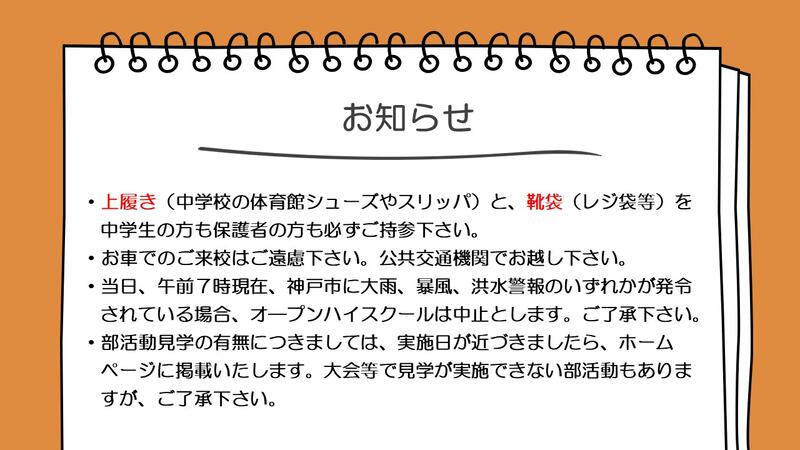 お知らせ
・上履き（中学校の体育館シューズやスリッパ）と、靴袋（レジ袋等）を
中学生の方も保護者の方も必ずご持参下さい。
・お車でのご来校はご遠慮下さい。公共交通機関でお越し下さい。
・当日、午前７時現在、神戸市に大雨、暴風、洪水警報のいずれかが発令
されている場合、オープンハイスクールは中止とします。ご了承下さい。
・部活動見学の有無につきましては、実施日が近づきましたら、ホーム
ページに掲載いたします。大会等で見学が実施できない部活動もありま
すが、ご了承下さい。